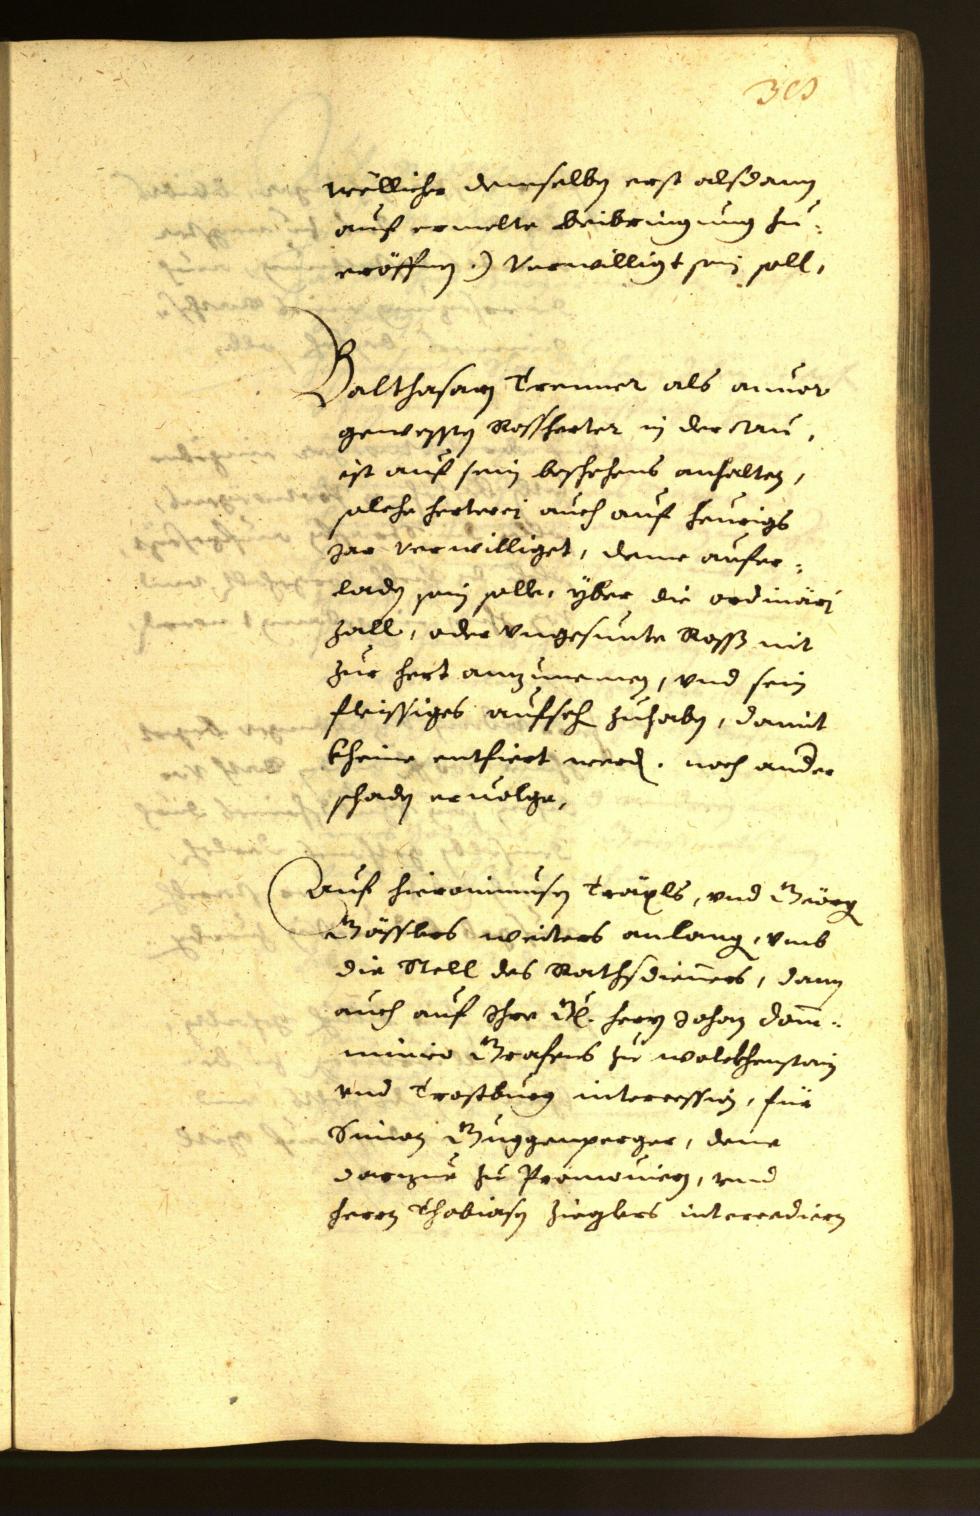 wellicher demselben erst alsdann
auf ermelte beibringung zu=
eröffnen.) Verwilligt sein soll,
Balthasarn Trenner als anvor
gewessten Rossherter in der Au,
ist auf sein beschehens anhalten,
solche herterei auch auf heurigs
Jar verwilliget, deme aufer=
laden sein solle, yber die ordinari
zall, oder vngesunte Ross nit
zur hert anzunemen, vnd sein
fleissiges aufsech zuhaben, damit
kheine entfiert werd. noch ander
schaden ervolge,
Auf Hieronimusen Träxls, vnd Geörg
Gässlers weiters anlang, vmb
die Stell des Rathsdieners, dann
auch auf Ihre Gl. herrn Johan dom=
minico Grafens zu wolckhenstain
vnd Trostburg intercession, für
Simon Guggenperger, deme
darzue zu Promouiern, vnd
herrn Thobiasen Zieglers intercediern